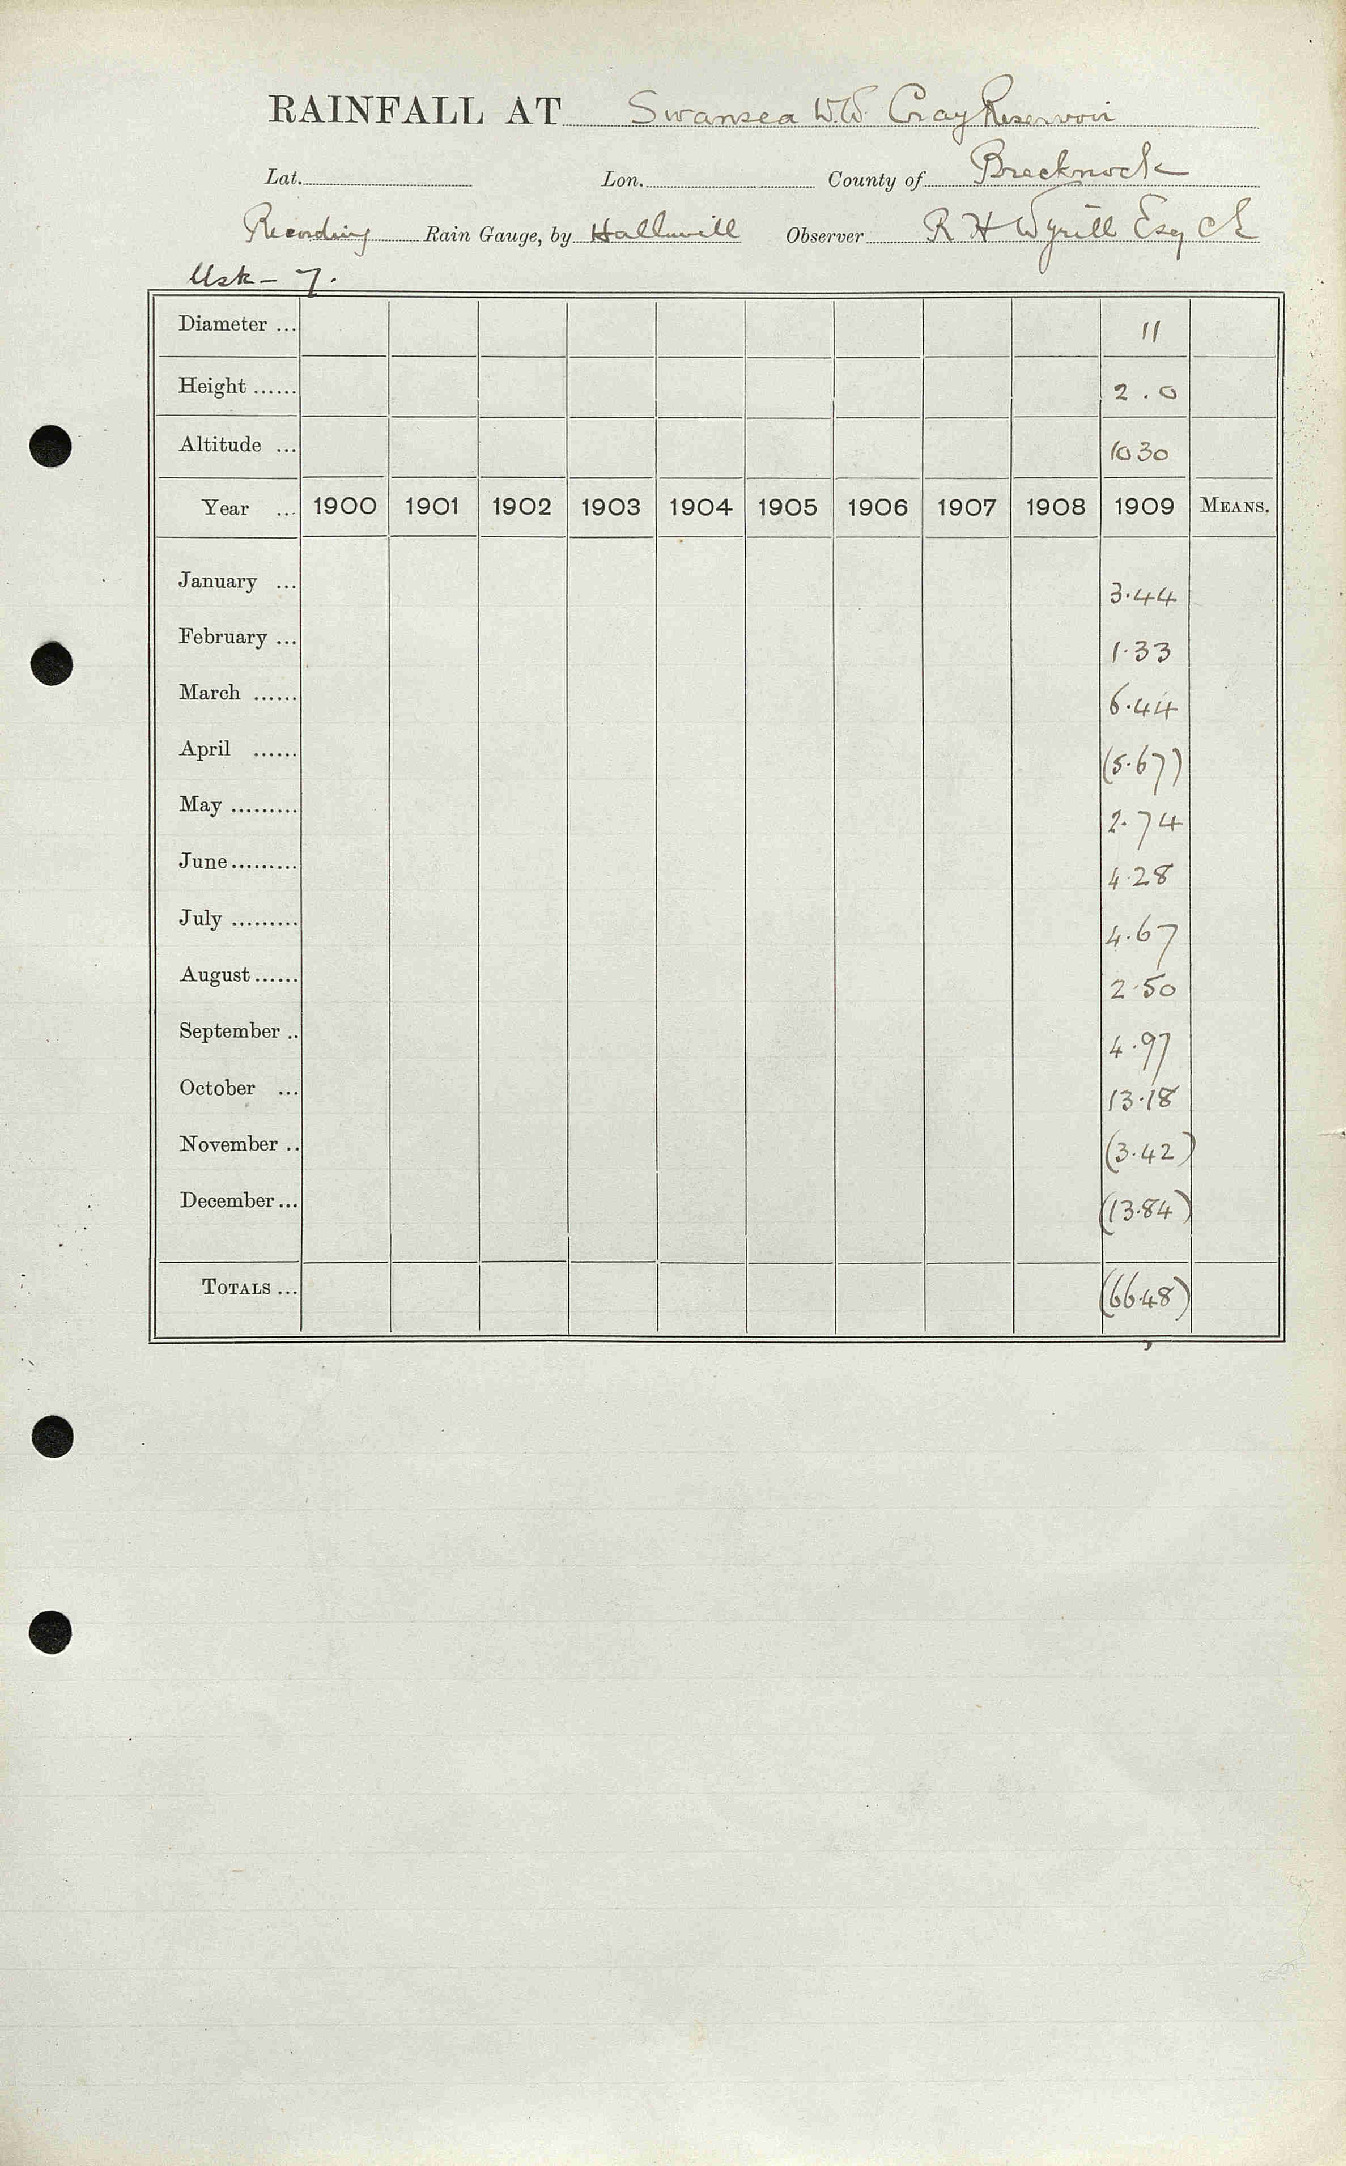 RAINFALL AT Swansea W.W. Cray Reservoir
Lat. Lon. County of Brecknock
Recording Rain Gauge, by Halliwell Observer R H Wyrill Esq CE
Usk - 7.
Diameter ... 11
Height ...... 2.0
Altitude ... 1030
Year ... 1900 1901 1902 1903 1904 1905 1906 1907 1908 1909 MEANS.
January ... 3.44
February ... 1.33
March ...... 6.44
April ...... (5.67)
May ......... 2.74
June......... 4.28
July ......... 4.67
August ...... 2.50
September .. 4.97
October ... 13.18
November .. (3.42)
December... (13.84)
TOTALS ... (66.48)